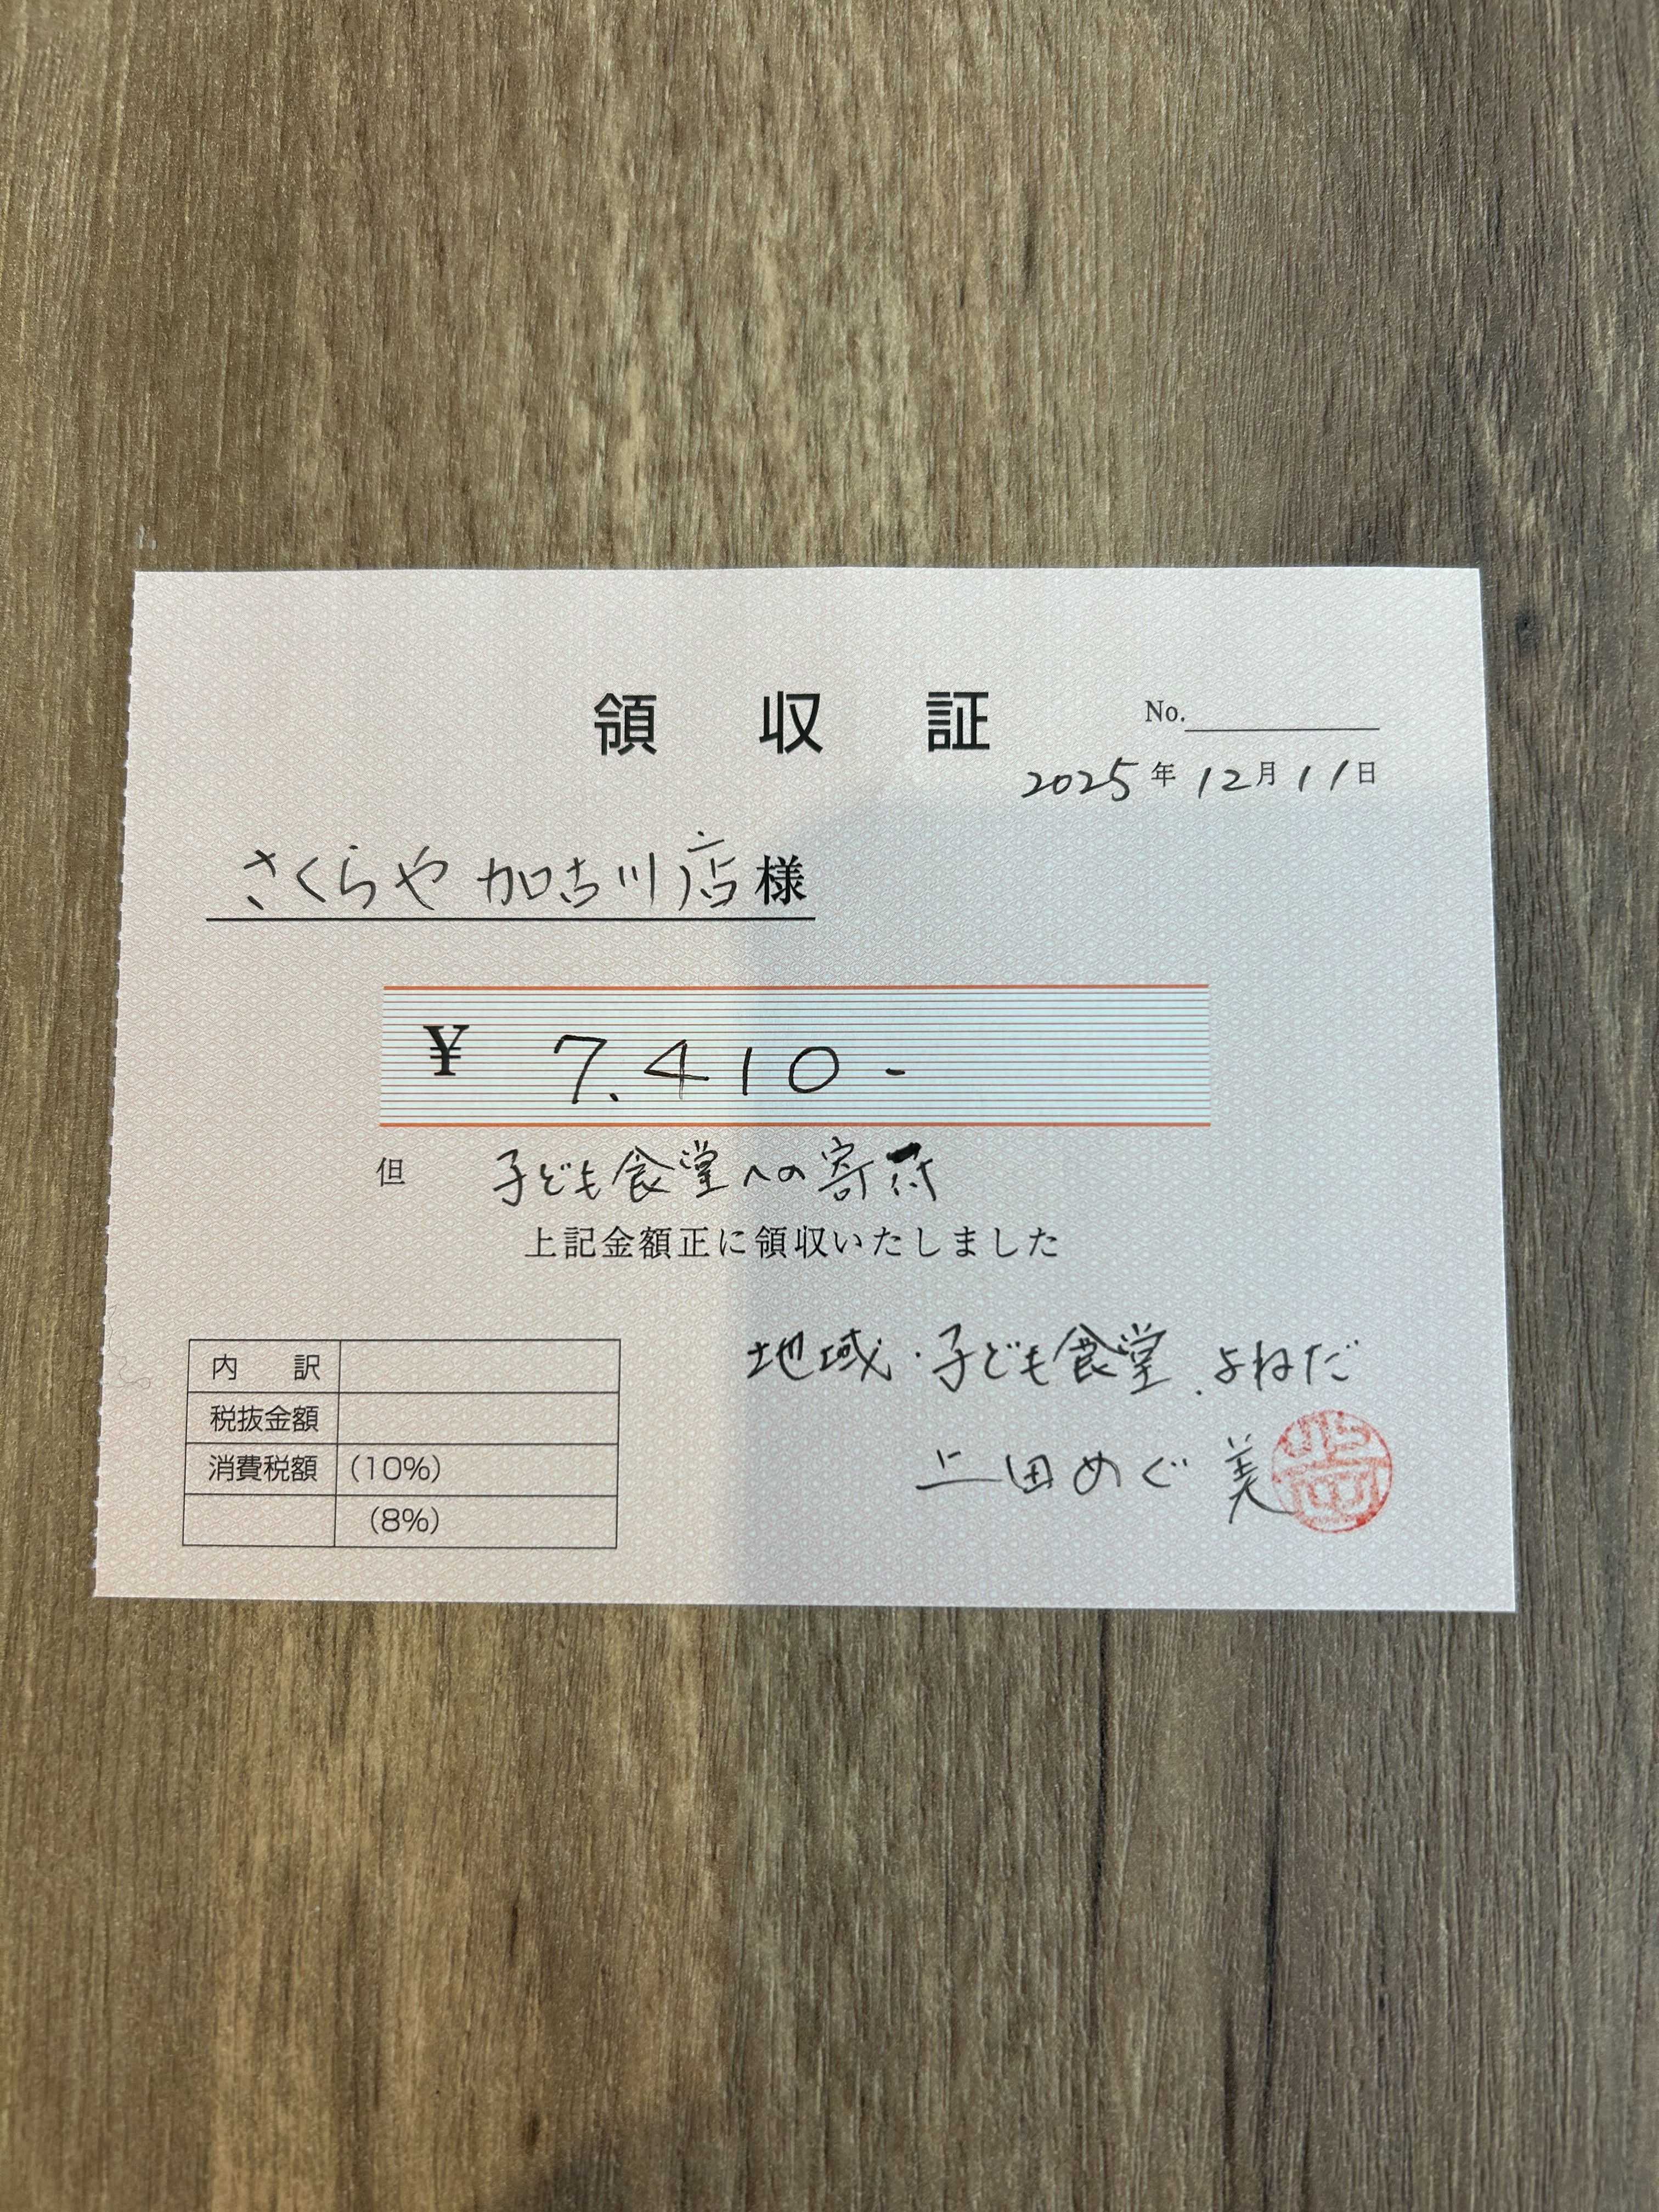 領収証
No.
2025年12月11日
さくらや 加古川店様
¥ 7.410-
但 子ども食堂への寄付
上記金額正に領収いたしました
地域・子ども食堂.よねだ
上田めぐ美
内訳
税抜金額
消費税額 (10%)
(8%)